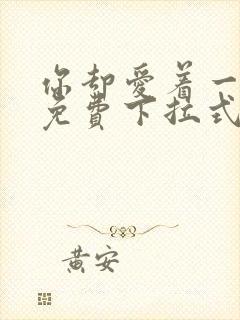 你却爱着一
免费下拉式
黄安